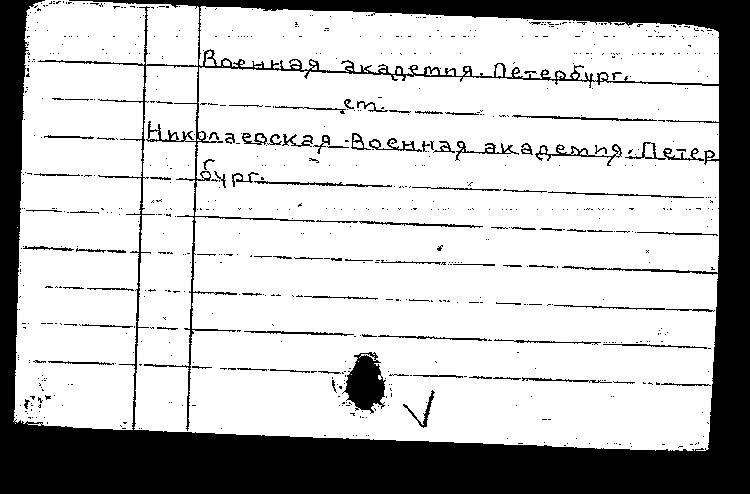 Военная академия. Петербург.
см.
Николаевская Военная академия. Петер
бург.